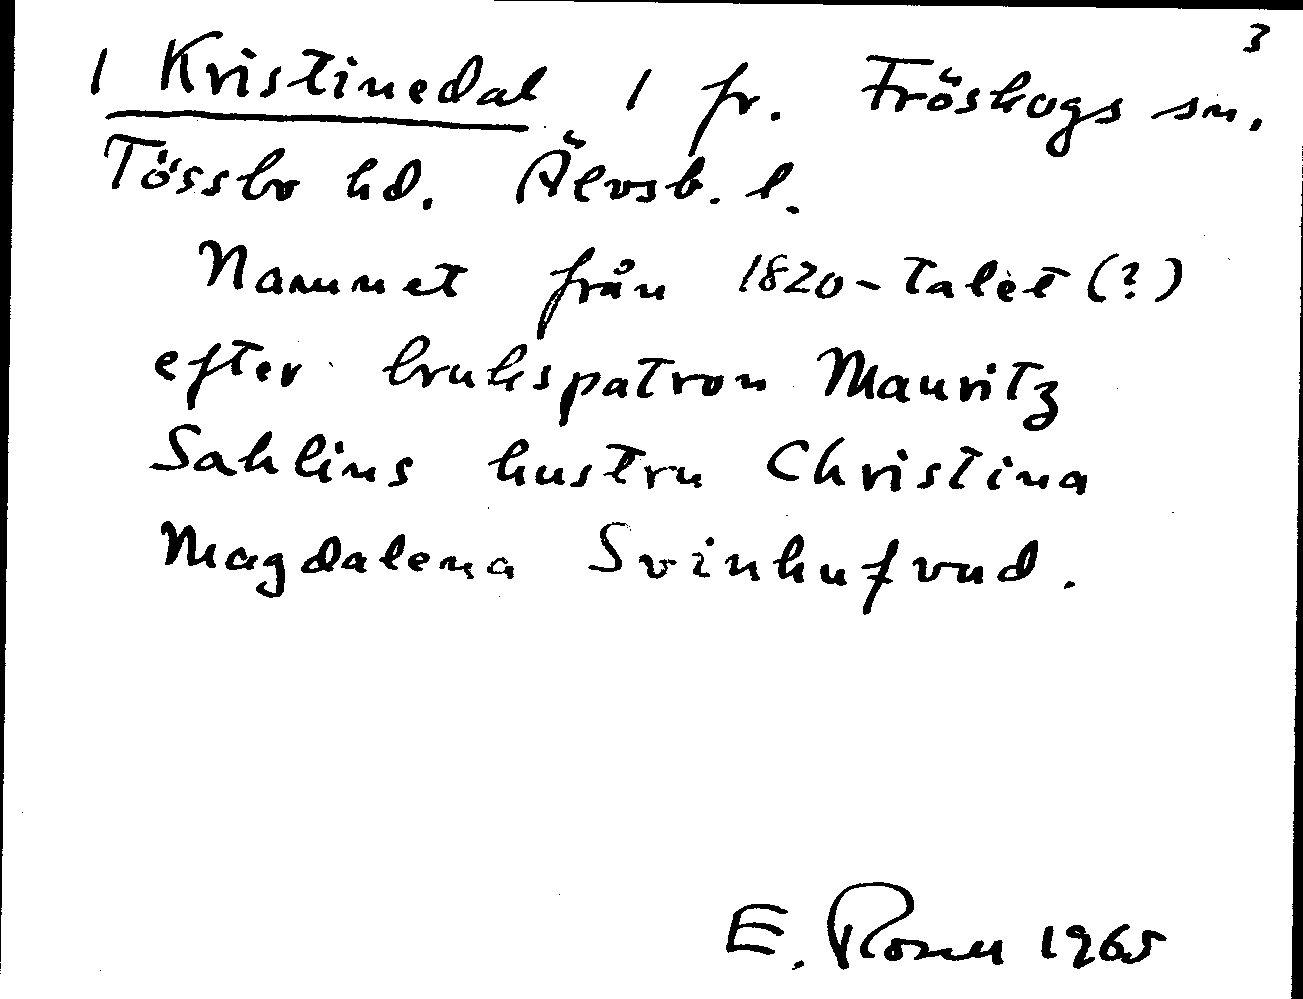 3
1 Kristinedal 1 fr. Fröskogs sn.
Tössbo hd. Älvsb. l.
Namnet från 1820-talet (?)
efter brukspatron Mauritz
Sahlins hustru Christina
Magdalena Svinhufvud.
E. Rosell 1965